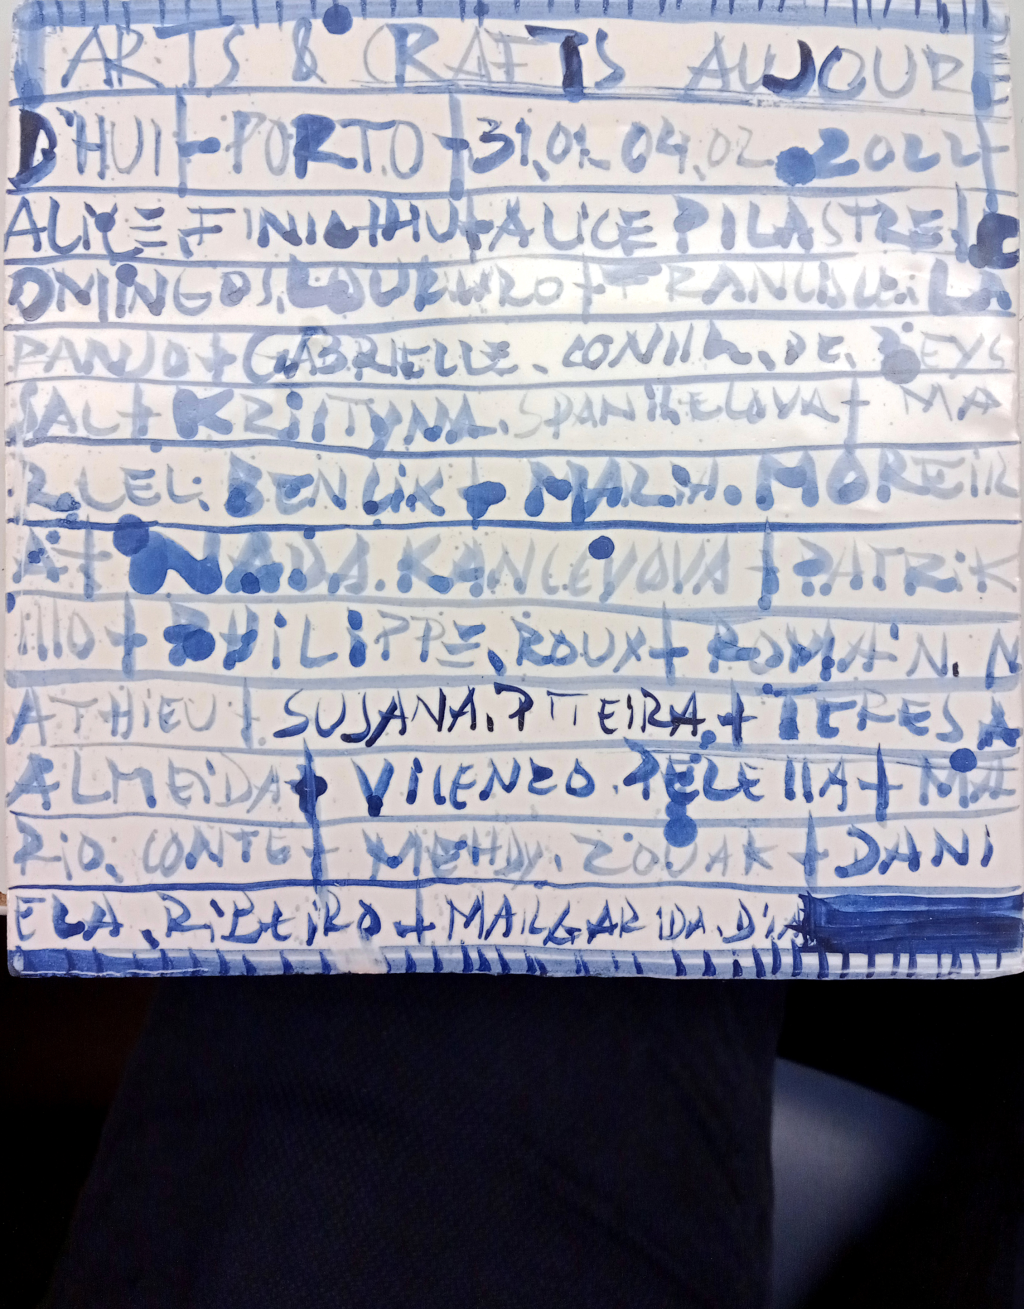 ARTS & CRAFTS AUJOUR
D'HUI + PORTO + 31.01 04.02 .2022
ALICE + ALICE PILASTRE + D
OMINGOS. LOUREIRO + LA
PANJO + GABRIELLE. DE.
SAL + SPANIHELOVA + MA
RCEL. BENCIK + MARIA. MOREIR
A + NADA. KANCEVOVA + PATRIK
ILLO + PHILIPPE. ROUX + ROMAIN. M
ATHIEU + SUSANA. PITEIRA + TERESA
ALMEIDA + MA
RIO. CONTE + MEHDY. ZOUAK + DANI
ELA. RIBEIRO + MARGARIDA. DIA